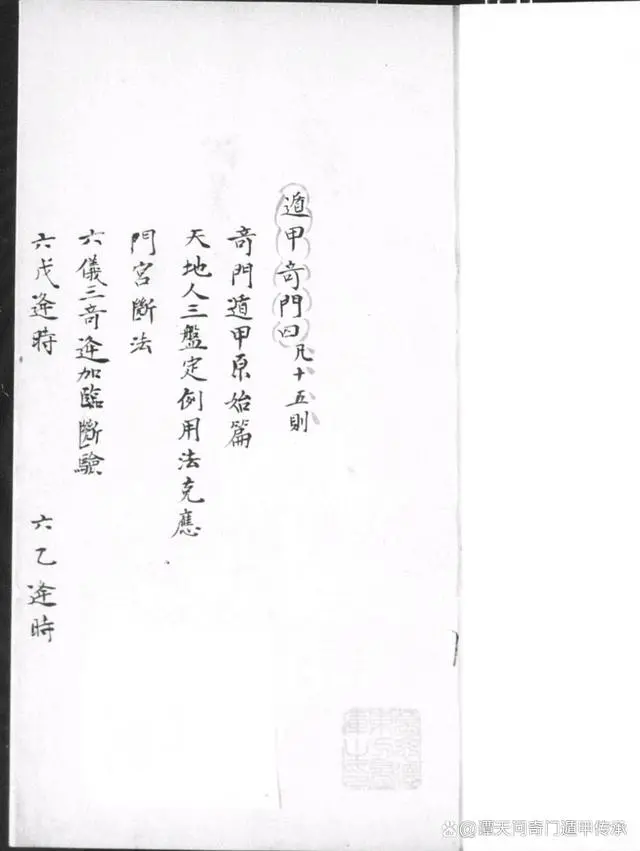 遁甲奇門四 凡十五則
奇門遁甲原始篇
天地人三盤定例用法克應
門宮斷法
六儀三奇逢加臨斷驗
六戊逢時 六乙逢時
@譚天河奇門遁甲傳承